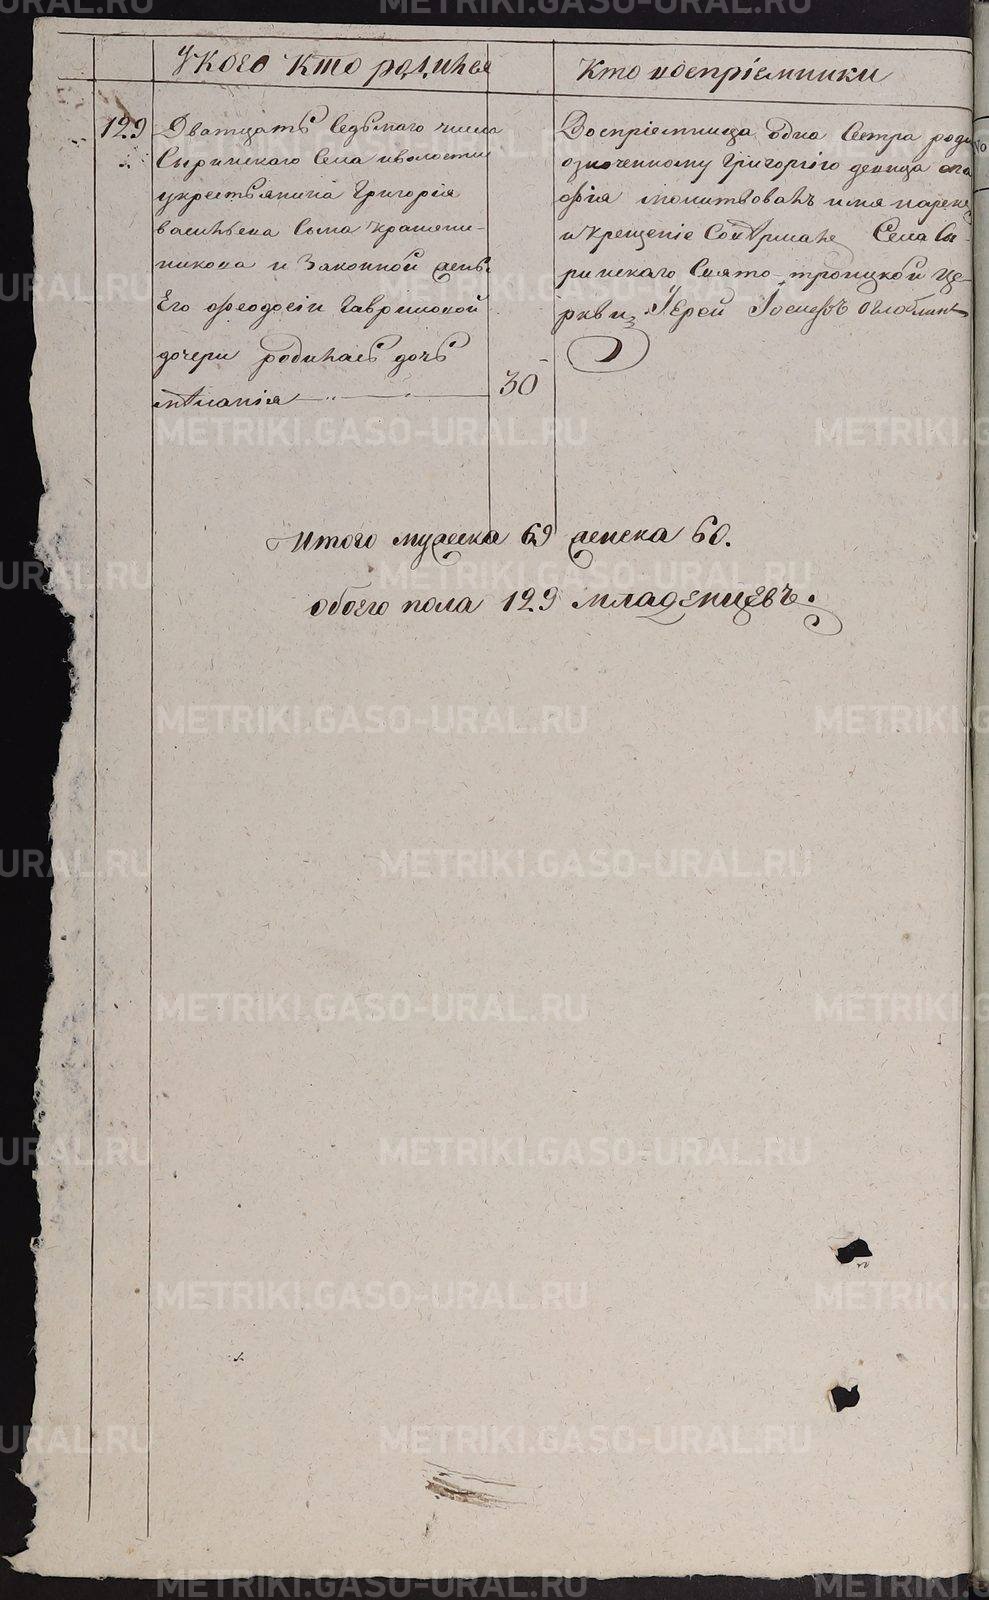 У кого кто родился
Кто воспрiемники
129
Дватцать Седьмаго числа
Сыринскаго Села и волости
у крестьянина Григорiя
васильева Сына
никова и Законной жены
Его феодосiи Гавриловой
дочери родилась дочь
мѣланiя
30
Воспрiемница одна Сестра родн
означенному Григорiю девица ага
фiя молитвовалъ имя нарекъ
и крещенiе Совѣршалъ Села Сы-
ринскаго Свято-троицкой це-
ркви Iерей Iосифъ Оглоблинъ
Итого мужеска 69 женска 60.
обоего пола 129 младенцевъ.
METRIKI.GASO-URAL.RU